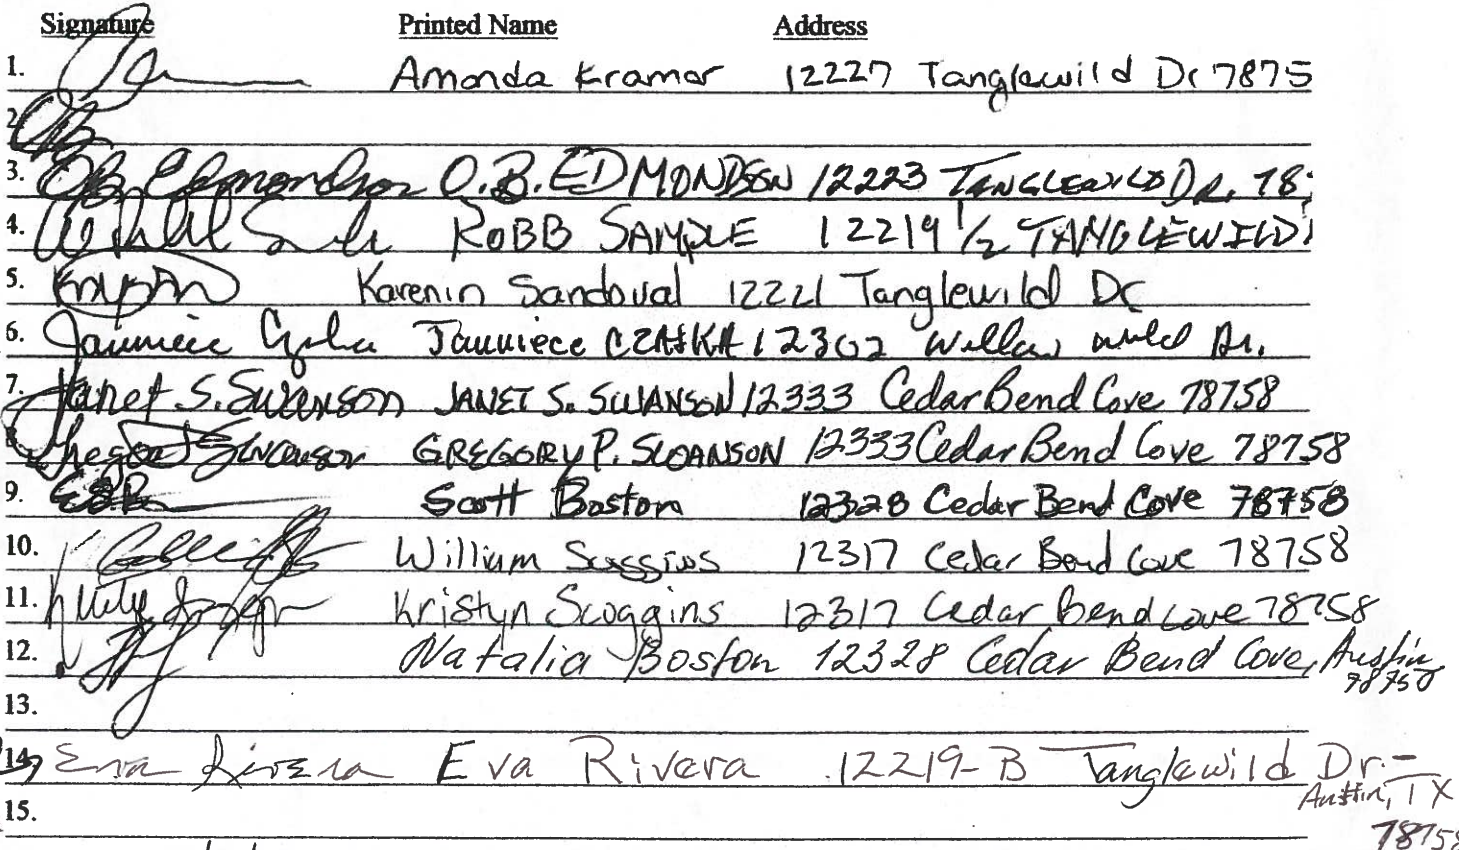 Signature Printed Name Address
1. Amanda Kramer 12227 Tanglewild Dr 7875
2.
3. OB Edmondson O.B. EDMONDSON 12223 TANGLEWILD DR. 78
4. ROBB SAMPLE 12219 1/2 TANGLEWILD
5. Karenin Sandoval 12221 Tanglewild Dr
6. 12302 Willow wild Dr.
7. Janet S. Swanson JANET S. SWANSON 12333 Cedar Bend Cove 78758
8. Swanson GREGORY P. SWANSON 12333 Cedar Bend Cove 78758
9. Scott Boston 12328 Cedar Bend Cove 78758
10. William 12317 Cedar Bend Cove 78758
11. Kristyn Scoggins 12317 Cedar Bend Cove 78758
12. Natalia Boston 12328 Cedar Bend Cove, Austin
13.
14. Eva Rivera Eva Rivera 12219-B Tanglewild Dr.-
Austin, TX
15.
78758